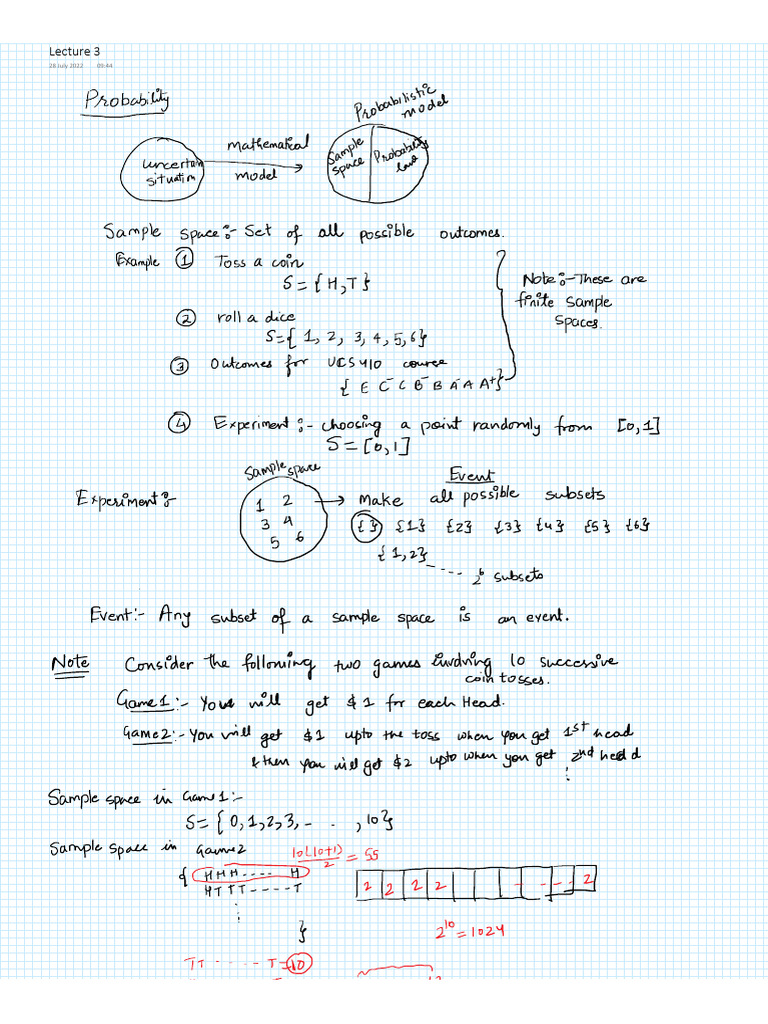 Lecture 3
28 July 2022 09:44
Probability
Probabilistic model
uncertain situation
mathematical model
Sample space
Probability law
Sample space:- Set of all possible outcomes.
Example ① Toss a coin
S = {H, T}
② roll a dice
S = {1, 2, 3, 4, 5, 6}
③ Outcomes for UCS410 course
{ E C⁻ C B⁻ B A⁻ A A⁺}
Note:- These are
finite sample
spaces.
④ Experiment:- choosing a point randomly from [0,1]
S = [0,1]
Sample space
Event
Experiment:-
1 2
3 4
5 6
Make all possible subsets
{ } {1} {2} {3} {4} {5} {6}
{1,2}
---- 2⁶ subsets
Event:- Any subset of a sample space is an event.
Note Consider the following two games involving 10 successive
coin tosses.
Game 1:- You will get $1 for each Head.
Game 2:- You will get $1 upto the toss when you get 1st head
& then you will get $2 upto when you get 2nd head
⋮
Sample space in Game 1:-
S = {0, 1, 2, 3, - - . , 10}
Sample space in Game 2
10(10+1)/2 = 55
{ HHH---- H
HTTT-----T
⋮
}
2 2 2 2 - - - - 2
2¹⁰ = 1024
TT ----- T = 10